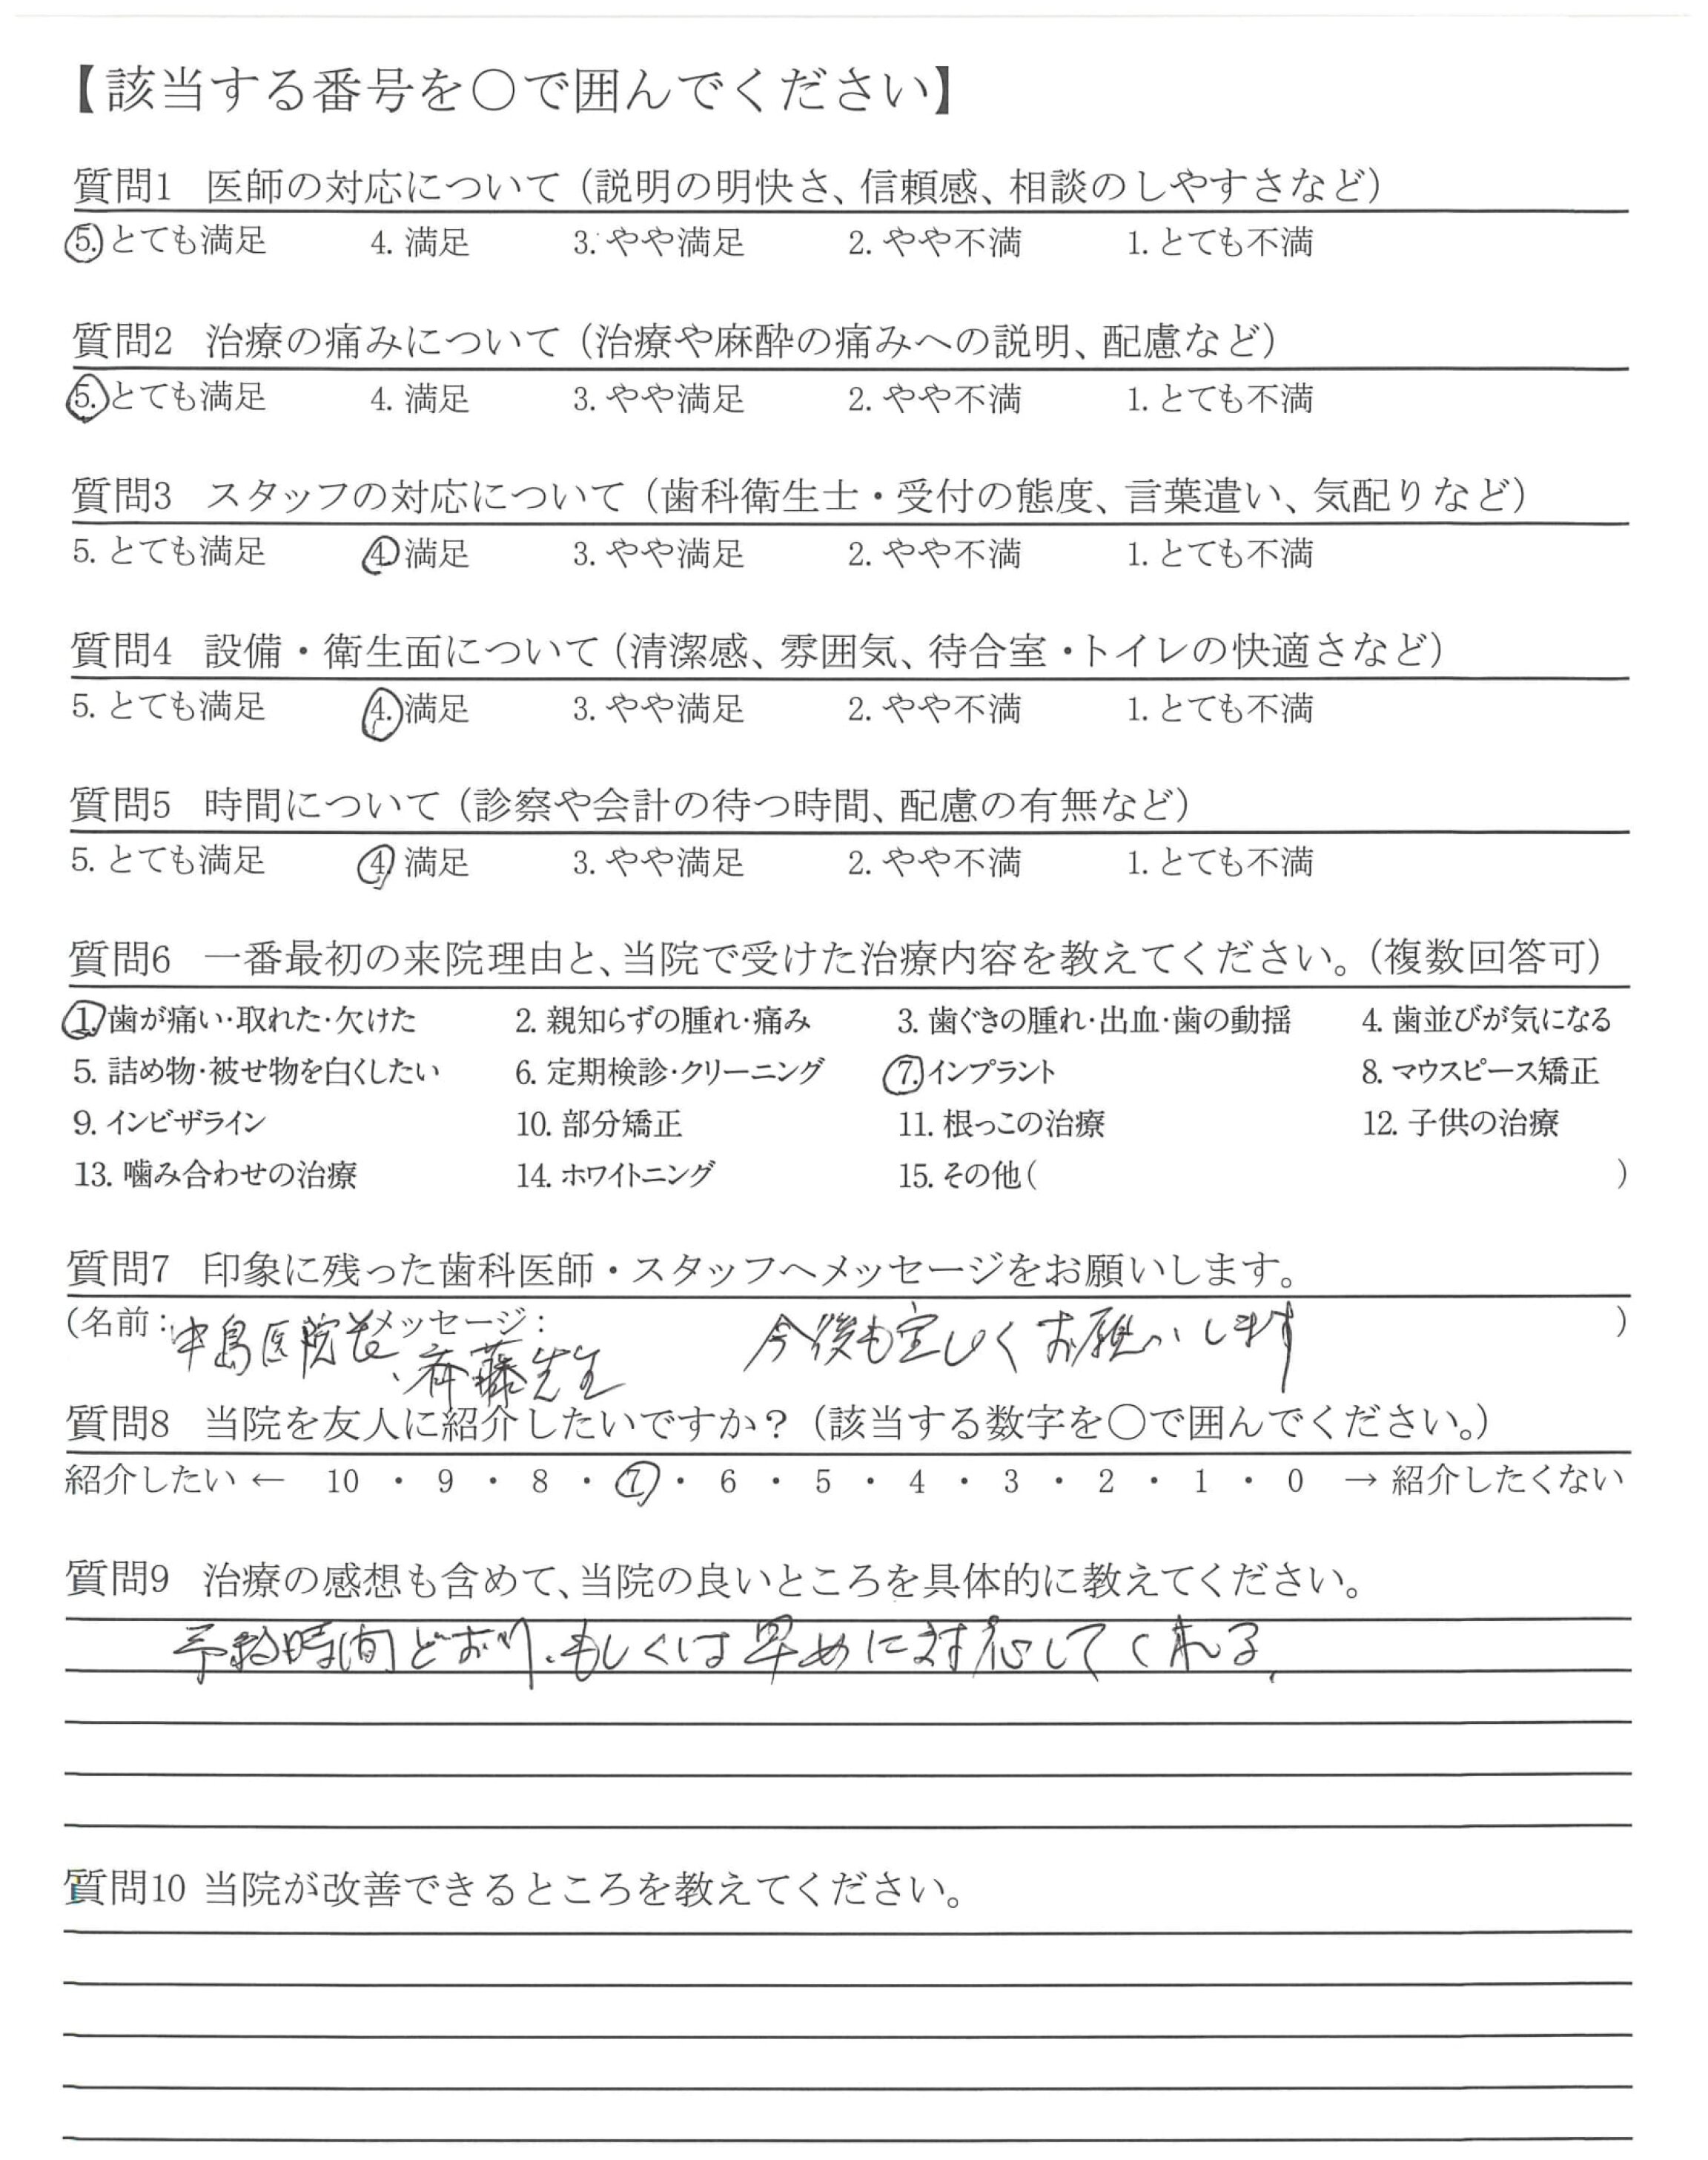 【該当する番号を○で囲んでください】
質問1 医師の対応について（説明の明快さ、信頼感、相談のしやすさなど）
5. とても満足 4. 満足 3. やや満足 2. やや不満 1. とても不満
質問2 治療の痛みについて（治療や麻酔の痛みへの説明、配慮など）
5. とても満足 4. 満足 3. やや満足 2. やや不満 1. とても不満
質問3 スタッフの対応について（歯科衛生士・受付の態度、言葉遣い、気配りなど）
5. とても満足 4. 満足 3. やや満足 2. やや不満 1. とても不満
質問4 設備・衛生面について（清潔感、雰囲気、待合室・トイレの快適さなど）
5. とても満足 4. 満足 3. やや満足 2. やや不満 1. とても不満
質問5 時間について（診察や会計の待つ時間、配慮の有無など）
5. とても満足 4. 満足 3. やや満足 2. やや不満 1. とても不満
質問6 一番最初の来院理由と、当院で受けた治療内容を教えてください。（複数回答可）
1. 歯が痛い・取れた・欠けた 2. 親知らずの腫れ・痛み 3. 歯ぐきの腫れ・出血・歯の動揺 4. 歯並びが気になる
5. 詰め物・被せ物を白くしたい 6. 定期検診・クリーニング 7. インプラント 8. マウスピース矯正
9. インビザライン 10. 部分矯正 11. 根っこの治療 12. 子供の治療
13. 噛み合わせの治療 14. ホワイトニング 15. その他（ ）
質問7 印象に残った歯科医師・スタッフへメッセージをお願いします。
（名前：中島医院長 メッセージ： 今後も宜しくお願いします ）
、斉藤先生
質問8 当院を友人に紹介したいですか？（該当する数字を○で囲んでください。）
紹介したい ← 10 ・ 9 ・ 8 ・ 7 ・ 6 ・ 5 ・ 4 ・ 3 ・ 2 ・ 1 ・ 0 → 紹介したくない
質問9 治療の感想も含めて、当院の良いところを具体的に教えてください。
予約時間どおり、もしくは早めに対応してくれる。
質問10 当院が改善できるところを教えてください。